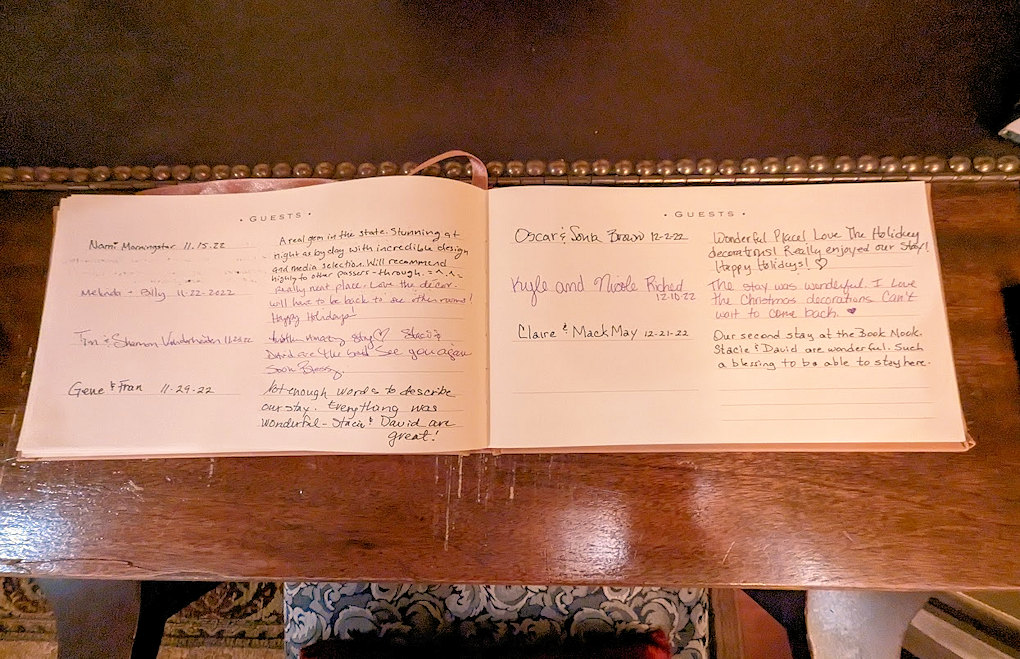 • GUESTS •
Nami Morningstar 11.15.22
A real gem in the state. Stunning at
night as by day with incredible design
and media selection. Will recommend
highly to other passers-through. =^.^=
Melinda + Billy 11-22-2022
Really neat place. Love the decor.
will have to be back to see other rooms!
Happy Holidays!
Tim & Shannon
Another Amazing Stay ♡ Stacie &
David are the best See you again
Soon
Gene & Fran 11-29-22
Not enough words to describe
our stay. Everything was
wonderful - Stacie & David are
great!
• GUESTS •
Oscar & Sonia Brown 12-2-22
Wonderful Place! Love The Holiday
decorations! Really enjoyed our Stay!
Happy Holidays! ♡
Kyle and Nicole Riched
12.10.22
The stay was wonderful. I Love
the Christmas decorations. Can't
wait to come back. ♥
Claire & Mack May 12-21-22
Our second stay at the Book Nook.
Stacie & David are wonderful. Such
a blessing to be able to stay here.